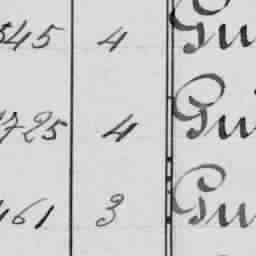 545 4 Gu
725 4 Gu
461 3 Gu